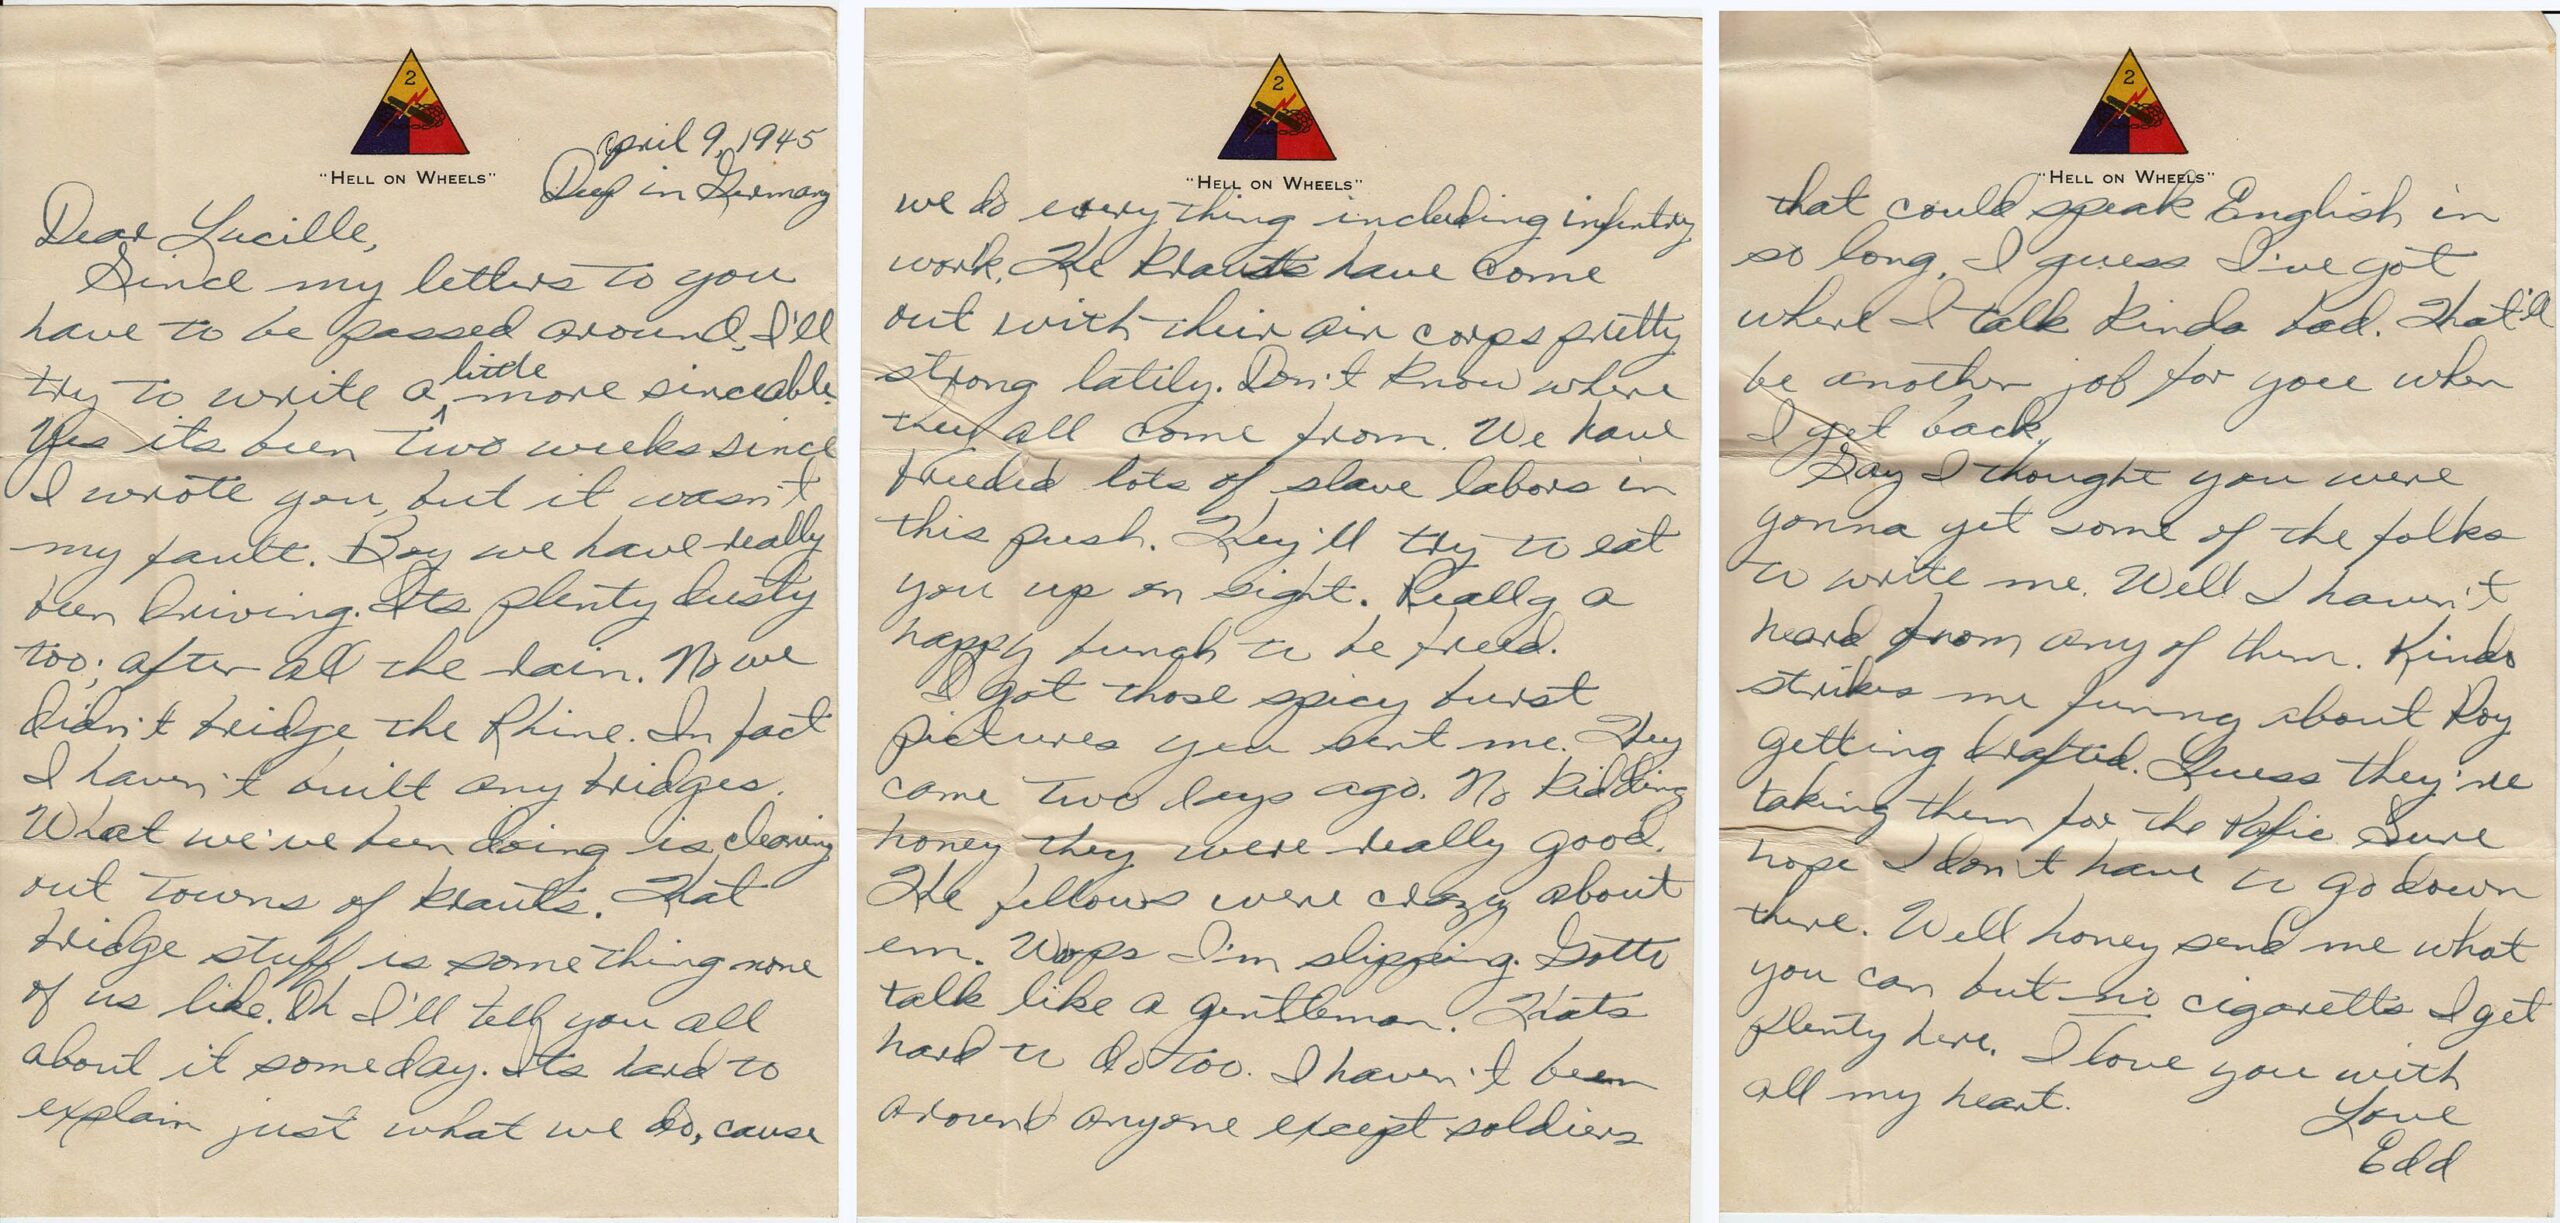 2
"HELL ON WHEELS"
April 9, 1945
Deep in Germany
Dear Lucille,
Since my letters to you
have to be passed around, I'll
try to write a little more sinceable.
Yes its been two weeks since
I wrote you, but it wasn't
my fault. Boy we have really
been driving. Its plenty dusty
too; after all the rain. No we
didn't bridge the Rhine. In fact
I haven't built any bridges.
What we've been doing is cleaning
out towns of krauts. That
bridge stuff is something none
of us like. Oh I'll tell you all
about it someday. Its hard to
explain just what we do, cause
2
"HELL ON WHEELS"
we do every thing including infintry
work. The krauts have come
out with their air corps pretty
strong latily. Don't know where
they all come from. We have
freeded lots of slave labors in
this push. They'll try to eat
you up on sight. Really a
happy bunch to be freed.
I got those spicy burst
pictures you sent me. They
came two days ago. No kidding
honey they were really good.
The fellows were crazy about
em. Wops I'm slipping. Gotta
talk like a gentleman. Thats
hard to do too. I haven't been
around anyone except soldiers
2
"HELL ON WHEELS"
that could speak English in
so long, I guess I've got
where I talk kinda bad. That'll
be another job for you when
I get back.
Say I thought you were
gonna get some of the folks
to write me. Well I haven't
heard from any of them. Kinda
strikes me funny about Roy
getting drafted. Guess they're
taking them for the Pafic. Sure
hope I don't have to go down
there. Well honey send me what
you can but no cigaretts I get
plenty here. I love you with
all my heart.
Love
Edd